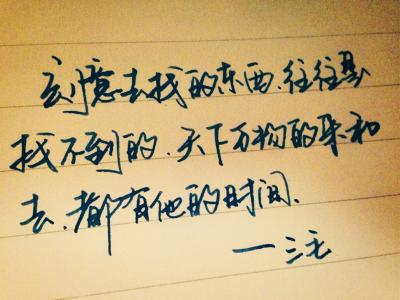 刻意去找的东西.往往是
找不到的.天下万物的来和
去.都有他的时间.
一三毛